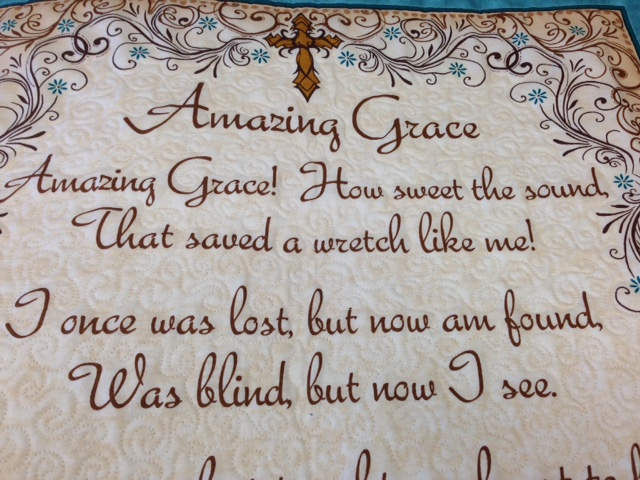 Amazing Grace
Amazing Grace! How sweet the sound,
That saved a wretch like me!
I once was lost, but now am found,
Was blind, but now I see.